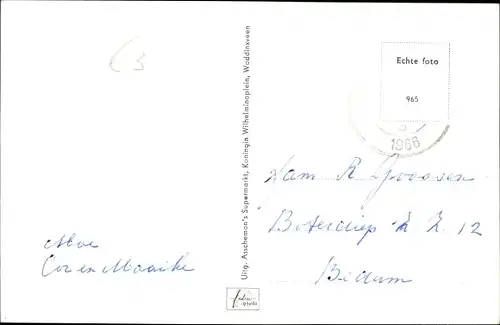 Echte foto
965
1966
Fam R Goossen
Boterdiep Z Z. 12
Bedum
Uitg. Asscheman's Supermarkt, Koningin Wilhelminaplein, Waddinxveen
Cor en Maaike